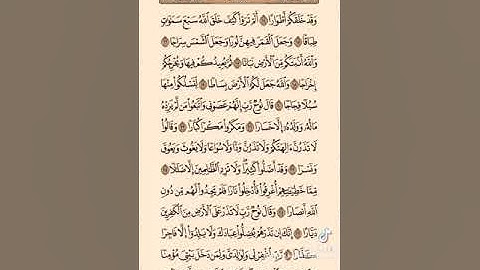 وَقَدْ خَلَقَكُمْ أَطْوَارًا ۝ أَلَمْ تَرَوْا۟ كَيْفَ خَلَقَ ٱللَّهُ سَبْعَ سَمَٰوَٰتٍ
طِبَاقًا ۝ وَجَعَلَ ٱلْقَمَرَ فِيهِنَّ نُورًا وَجَعَلَ ٱلشَّمْسَ سِرَاجًا ۝
وَٱللَّهُ أَنۢبَتَكُم مِّنَ ٱلْأَرْضِ نَبَاتًا ۝ ثُمَّ يُعِيدُكُمْ فِيهَا وَيُخْرِجُكُمْ
إِخْرَاجًا ۝ وَٱللَّهُ جَعَلَ لَكُمُ ٱلْأَرْضَ بِسَاطًا ۝ لِّتَسْلُكُوا۟ مِنْهَا
سُبُلًا فِجَاجًا ۝ قَالَ نُوحٌ رَّبِّ إِنَّهُمْ عَصَوْنِى وَٱتَّبَعُوا۟ مَن لَّمْ يَزِدْهُ
مَالُهُۥ وَوَلَدُهُۥٓ إِلَّا خَسَارًا ۝ وَمَكَرُوا۟ مَكْرًا كُبَّارًا ۝ وَقَالُوا۟
لَا تَذَرُنَّ ءَالِهَتَكُمْ وَلَا تَذَرُنَّ وَدًّا وَلَا سُوَاعًا وَلَا يَغُوثَ وَيَعُوقَ
وَنَسْرًا ۝ وَقَدْ أَضَلُّوا۟ كَثِيرًا وَلَا تَزِدِ ٱلظَّٰلِمِينَ إِلَّا ضَلَٰلًا ۝
مِّمَّا خَطِيٓـَٰٔتِهِمْ أُغْرِقُوا۟ فَأُدْخِلُوا۟ نَارًا فَلَمْ يَجِدُوا۟ لَهُم مِّن دُونِ
ٱللَّهِ أَنصَارًا ۝ وَقَالَ نُوحٌ رَّبِّ لَا تَذَرْ عَلَى ٱلْأَرْضِ مِنَ ٱلْكَٰفِرِينَ
دَيَّارًا ۝ إِنَّكَ إِن تَذَرْهُمْ يُضِلُّوا۟ عِبَادَكَ وَلَا يَلِدُوٓا۟ إِلَّا فَاجِرًا
كَفَّارًا ۝ رَّبِّ ٱغْفِرْ لِى وَلِوَٰلِدَىَّ وَلِمَن دَخَلَ بَيْتِىَ مُؤْمِنًا